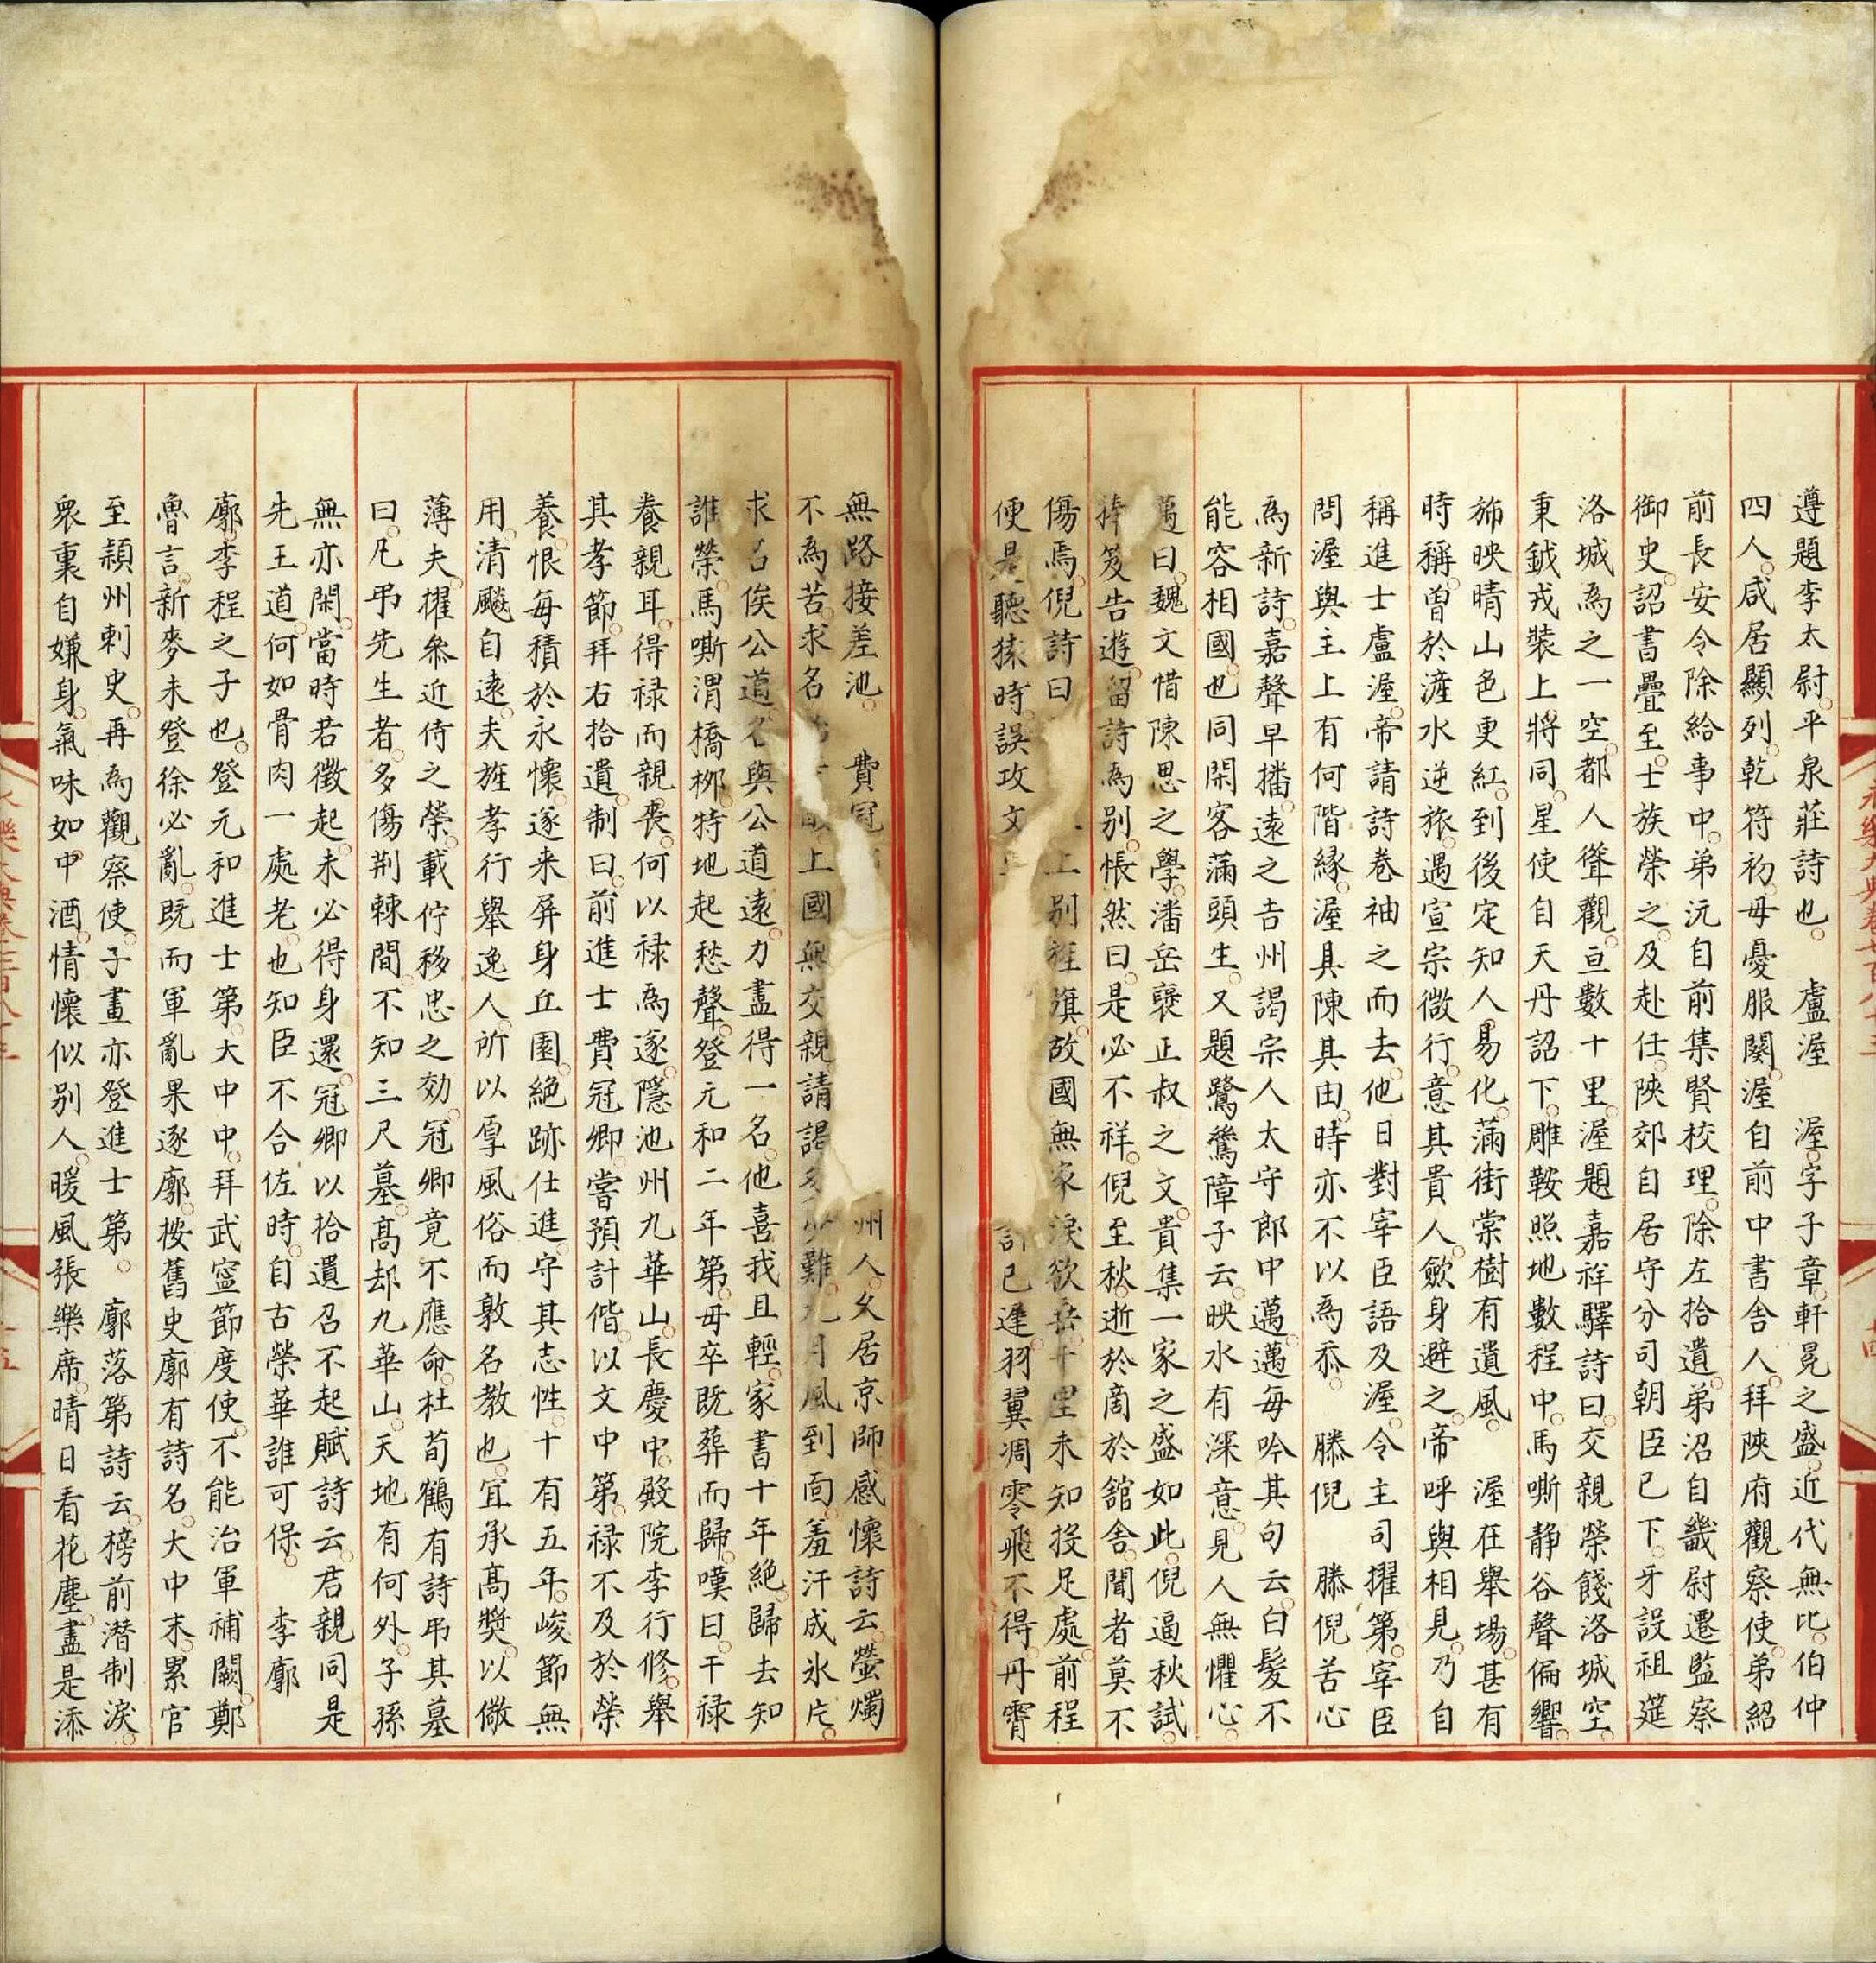 遵題李太尉平泉莊詩也 盧渥 渥字子章軒冕之盛近代無比伯仲
四人咸居顯列乾符初母憂服闋渥自前中書舍人拜陝府觀察使弟紹
前長安令除給事中弟沆自前集賢校理除左拾遺弟沼自畿尉遷監察
御史詔書疊至士族榮之及赴任陝郊自居守分司朝臣已下牙設祖筵
洛城為之一空都人聳觀亘數十里渥題嘉祥驛詩曰交親榮餞洛城空
秉鉞戎裝上將同星使自天丹詔下雕鞍照地數程中馬嘶静谷聲偏響
斾映晴山色更紅到後定知人易化滿街棠樹有遺風 渥在舉場甚有
時稱曾於滻水逆旅遇宣宗微行意其貴人歛身避之帝呼與相見乃自
稱進士盧渥帝請詩卷袖之而去他日對宰臣語及渥令主司擢第宰臣
問渥與主上有何階緣渥具陳其由時亦不以為忝 滕倪 滕倪苦心
為新詩嘉聲早播遠之吉州謁宗人太守郎中邁邁每吟其句云白髮不
能容相國也同閑客滿頭生又題鷺鷥障子云映水有深意見人無懼心
邁曰魏文惜陳思之學潘岳襃正叔之文貴集一家之盛如此倪逼秋試
捧笈告遊留詩為别悵然曰是必不祥倪至秋逝於商於舘舍聞者莫不
傷焉倪詩曰 上别旌旗故國無家淚欲 千里未知投足處前程
便是聽猿時誤攻文 已遲羽翼凋零飛不得丹霄
無路接差池 費冠 州人久居京師感懷詩云螢燭
不為苦求名 上國無交親請謁多少難九月風到面羞汗成氷片
求名俟公道名與公道遠力盡得一名他喜我且輕家書十年絶歸去知
誰榮馬嘶渭橋栁特地起愁聲登元和二年第母卒既葬而歸嘆曰干禄
養親耳得禄而親喪何以禄為遂隱池州九華山長慶中殿院李行修舉
其孝節拜右拾遺制曰前進士費冠卿嘗預計偕以文中第禄不及於榮
養恨每積於永懷遂来屏身丘園絶跡仕進守其志性十有五年峻節無
用清飈自遠夫旌孝行舉逸人所以厚風俗而敦名教也宜承高奬以儆
薄夫擢叅近侍之榮載佇移忠之効冠卿竟不應命杜荀鶴有詩弔其墓
曰凡弔先生者多傷荆棘間不知三尺墓髙却九華山天地有何外子孫
無亦閑當時若徵起未必得身還冠卿以拾遺召不起賦詩云君親同是
先王道何如骨肉一處老也知臣不合佐時自古榮華誰可保 李廓
廓李程之子也登元和進士第大中中拜武寧節度使不能治軍補闕鄭
魯言新麥未登徐必亂既而軍亂果逐廓按舊史廓有詩名大中末累官
至頴州刺史再為觀察使子晝亦登進士第 廓落第詩云榜前潜制淚
衆裏自嫌身氣味如中酒情懷似别人暖風張樂席晴日看花塵盡是添